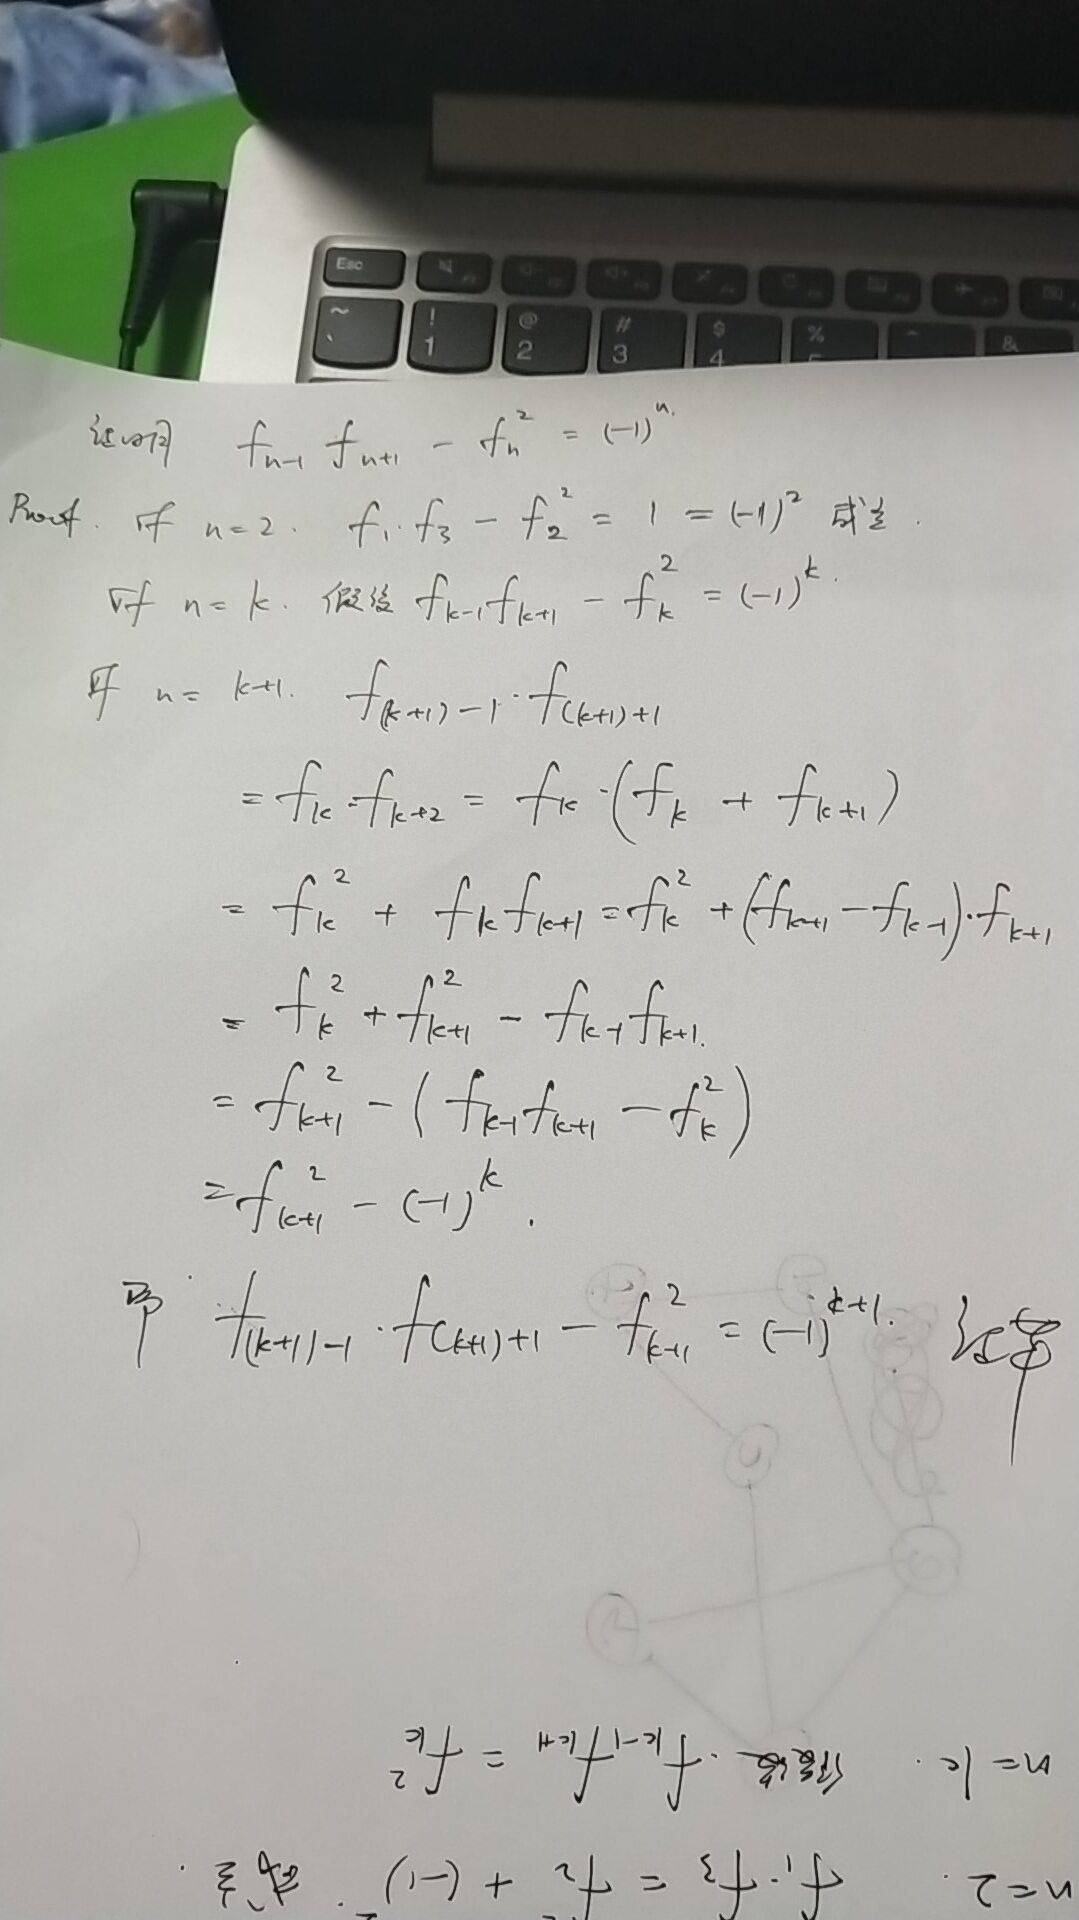 Esc
~ ! @ # $ % &
` 1 2 3 4 5
证明 fₙ₋₁ fₙ₊₁ - fₙ² = (-1)ⁿ.
Proof. 对 n=2. f₁·f₃ - f₂² = 1 = (-1)² 成立.
对 n=k. 假设 fₖ₋₁fₖ₊₁ - fₖ² = (-1)ᵏ.
对 n= k+1. f₍ₖ₊₁₎₋₁·f₍ₖ₊₁₎₊₁
= fₖ·fₖ₊₂ = fₖ·(fₖ + fₖ₊₁)
= fₖ² + fₖfₖ₊₁ = fₖ² + (fₖ₊₁ - fₖ₋₁)·fₖ₊₁
= fₖ² + fₖ₊₁² - fₖ₋₁fₖ₊₁.
= fₖ₊₁² - (fₖ₋₁fₖ₊₁ - fₖ²)
= fₖ₊₁² - (-1)ᵏ.
即 f₍ₖ₊₁₎₋₁·f₍ₖ₊₁₎₊₁ - fₖ₊₁² = (-1)ᵏ⁺¹. 证毕
n=2. f₁·f₃ = f₂² + (-1)². 成立.
n=k. 假设. fₖ₋₁fₖ₊₁ = fₖ²